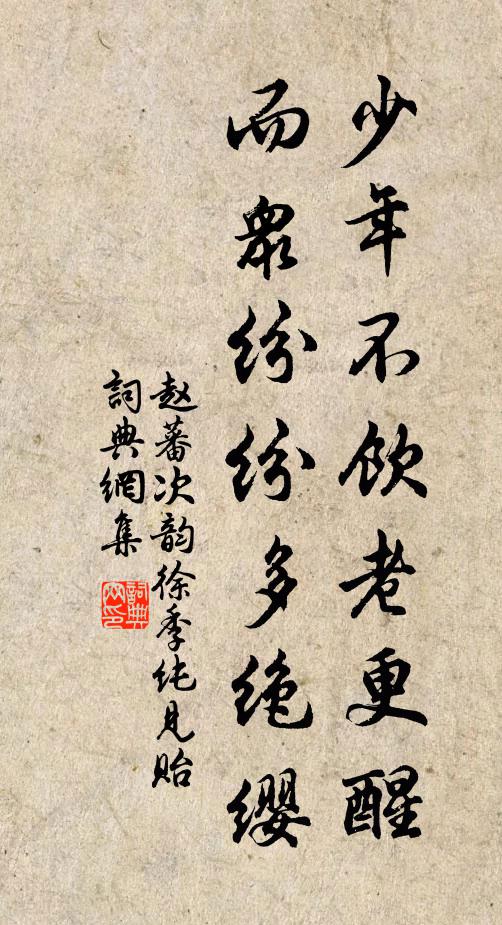 少年不饮老更醒
而众纷纷多绝缨
赵蕃次韵徐季纯见贻
詞典網集
詞典网印